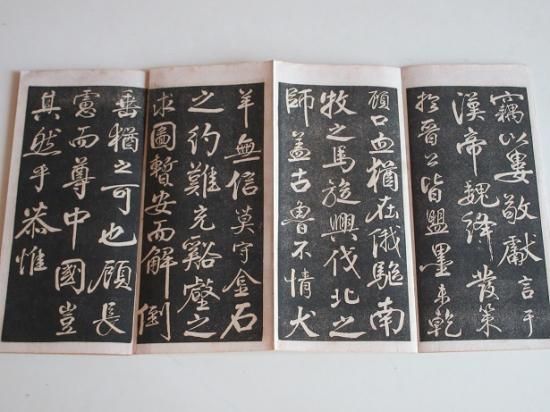 竊以婁敬獻言于
漢帝魏絳發策
於晉公皆盟墨未乾
顧口血猶在俄驅南
牧之馬旋興伐北之
師蓋古魯不情犬
羊無信莫守金石
之約難充谿壑之
求圖暫安而解倒
垂猶之可也顧長
慮而尊中國豈
其然乎恭惟